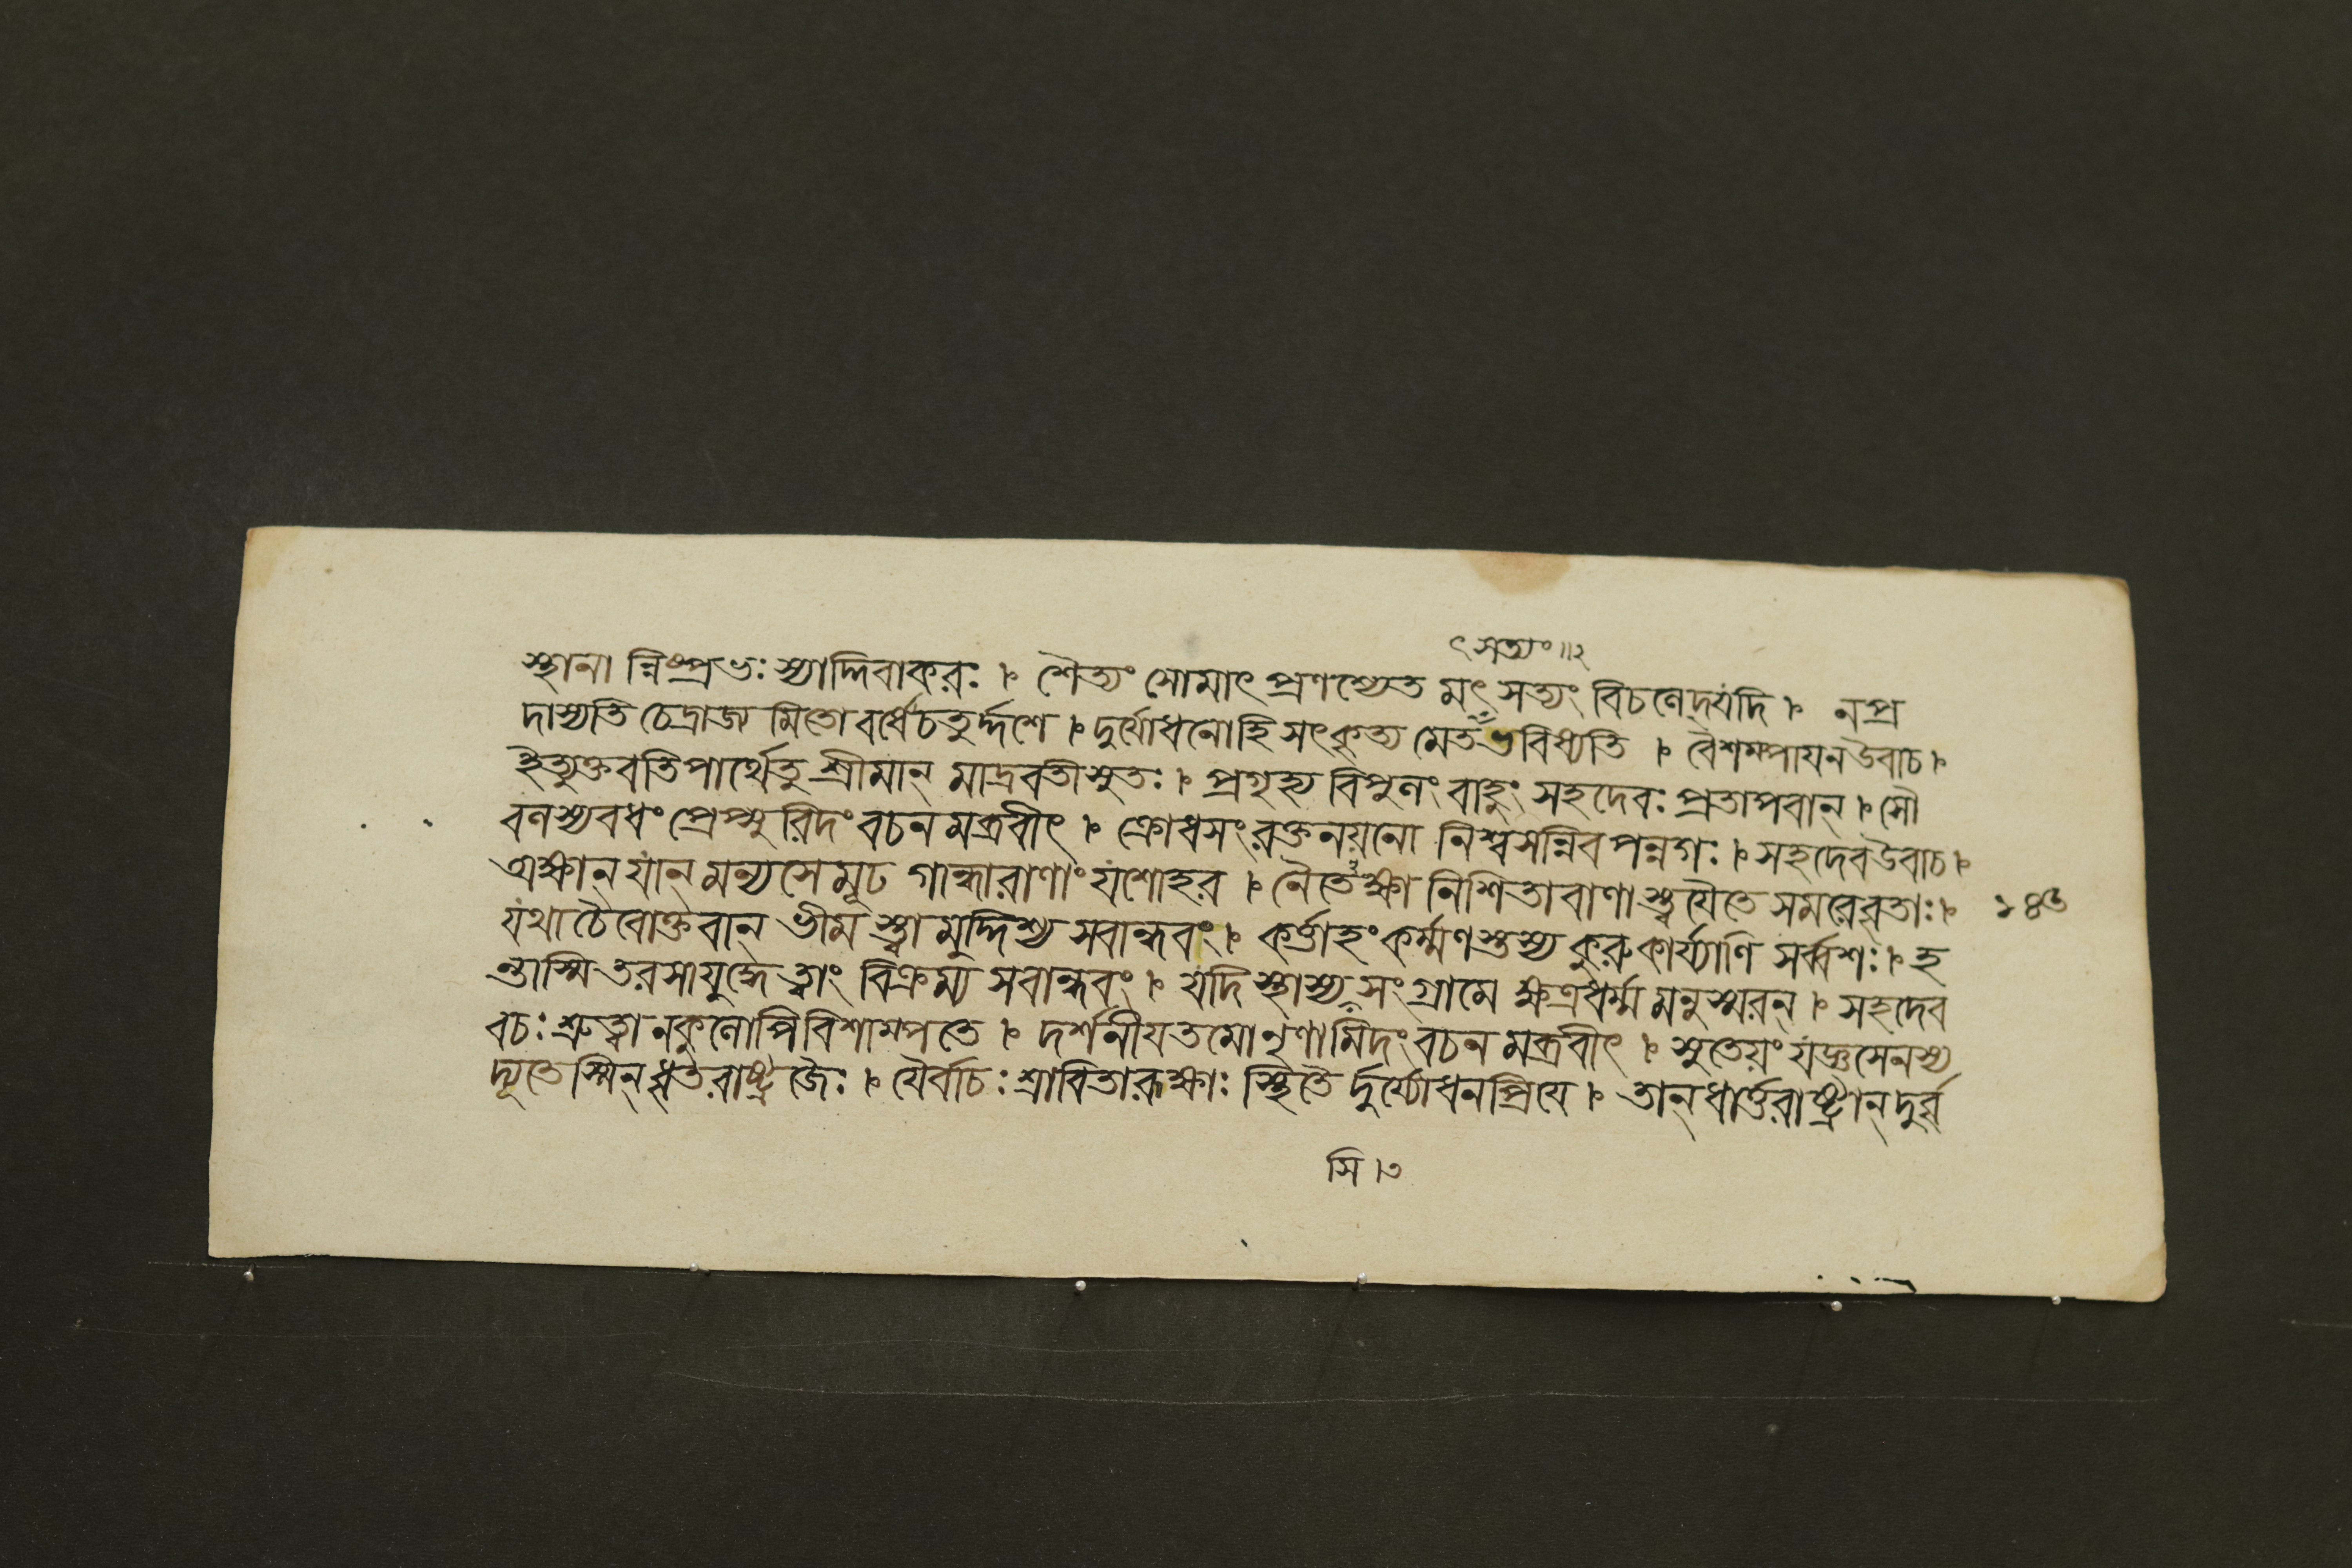 ৎসত্যং॥২
স্থানা ন্নিষ্প্রভঃ স্যাদ্দিবাকরঃ । শৈত্যং সোমাৎ প্রণশ্যেত মৎ সত্যং বিচলেদ্যদি । নপ্র
দাস্যতি চেদ্রাজ্য মিতো বর্ষেচতুর্দ্দশে । দুর্যোধনোহি সৎকৃত্য মেতদ্ভবিষ্যতি । বৈশম্পায়ন উবাচ ।
ইত্যুক্তবতিপার্থেতু শ্রীমান্ মাদ্রবতীসুতঃ । প্রগৃহ্য বিপুলং বাহুং সহদেবঃ প্রতাপবান্ । সৌ
বলস্যবধং প্রেপ্সু রিদং বচন মব্রবীৎ । ক্রোধসংরক্তনয়নো নিশ্বসন্নিব পন্নগঃ । সহদেব উবাচ ।
অক্ষান্ যান্ মন্যসে মূঢ গান্ধারাণাং যশোহর । নৈতেঽক্ষা নিশিতাবাণা স্ত্বযৈতে সমরেবৃতাঃ । ১৪৬
যথাচৈবোক্তবান্ ভীম স্ত্বা মুদ্দিশ্য সবান্ধবং । কর্ত্তাহং কর্ম্মণস্তস্য কুরুকার্য্যাণি সর্ব্বশঃ । হ
ন্তাস্মি তরসাযুদ্ধে ত্বাং বিক্রম্য সবান্ধবং । যদি স্থাস্য সংগ্রামে ক্ষত্রধর্ম্ম মনুস্মরন্ । সহদেব
বচঃ শ্রুত্বা নকুলোপিবিশাম্পতে । দর্শনীযতমোনৃণামিদং বচন মব্রবীৎ । সুতেয়ং যজ্ঞসেনস্য
দ্যূতেস্মিন্ ধৃতরাষ্ট্র জৈঃ । যৈর্বাচঃ শ্রাবিতারূক্ষাঃ স্থিতৈ র্দুর্য্যোধনপ্রিযে । তান্ ধার্ত্তরাষ্ট্রান্ দুর্বৃ
সি ।৩